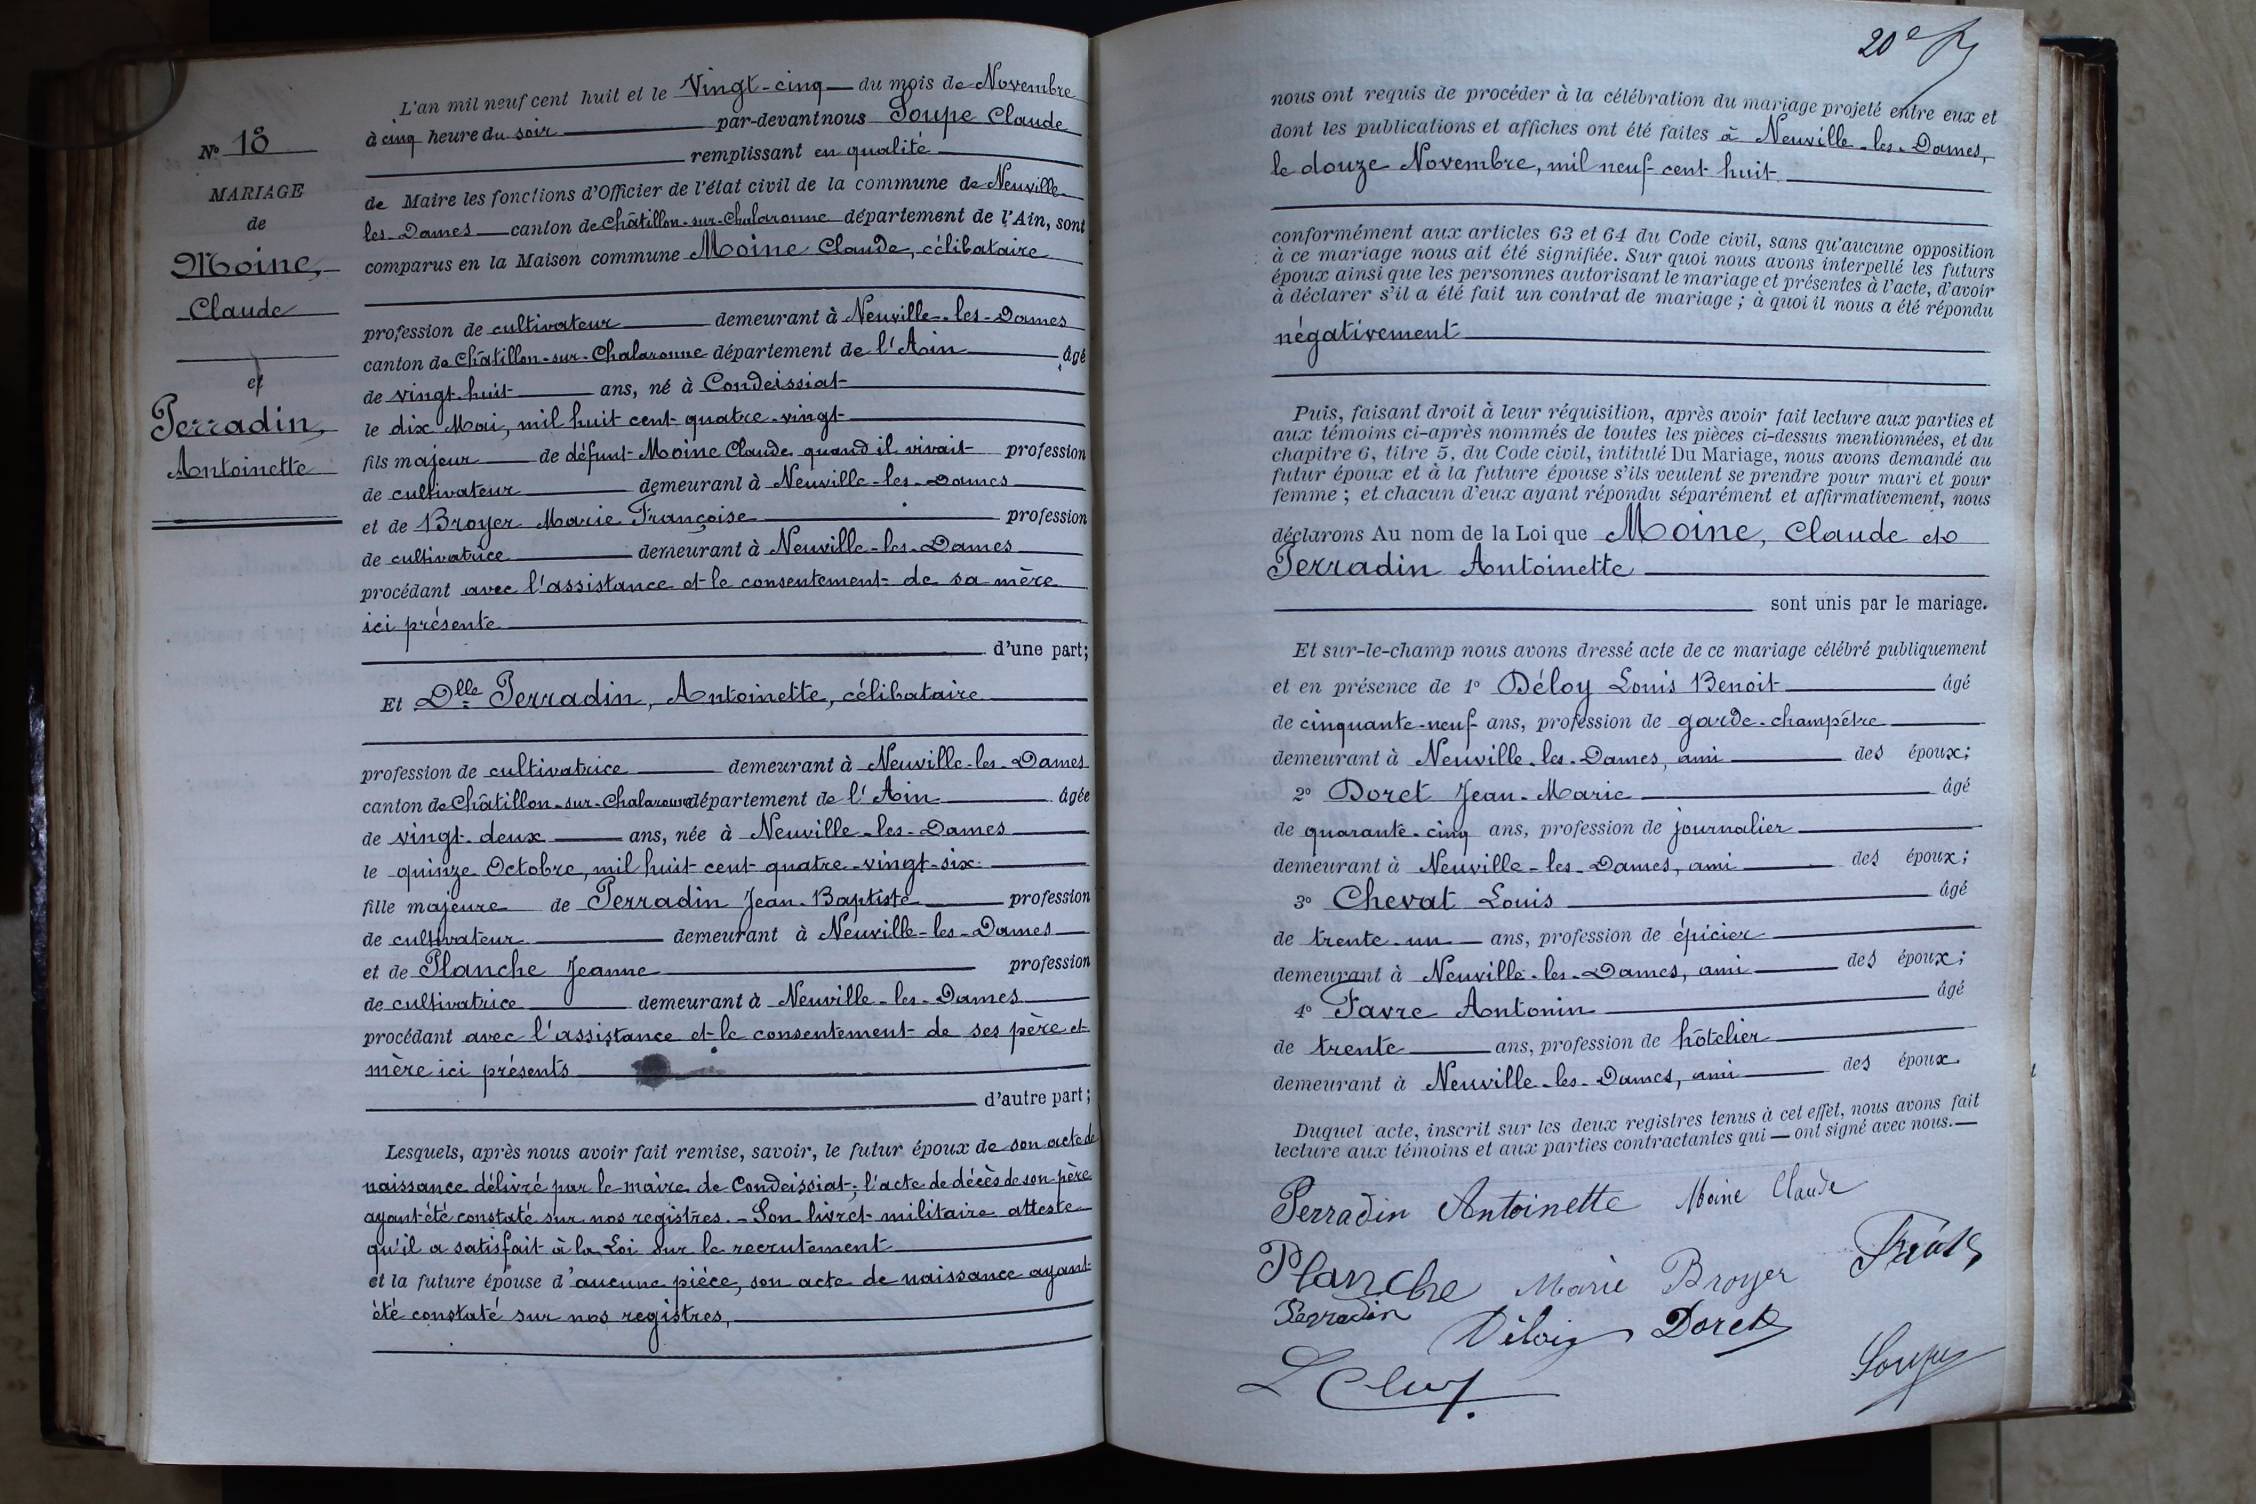 L'an mil neuf cent huit et le Vingt-cinq du mois de Novembre
à cinq heure du soir par-devant nous Soupe Claude
remplissant en qualité
de Maire les fonctions d'Officier de l'état civil de la commune de Neuville
les-Dames canton de Châtillon-sur-Chalaronne département de l'Ain, sont
comparus en la Maison commune Moine Claude, célibataire
profession de cultivateur demeurant à Neuville-les-Dames
canton de Châtillon-sur-Chalaronne département de l'Ain âgé
de vingt-huit ans, né à Condeissiat
le dix Mai, mil huit cent quatre-vingt
fils majeur de défunt Moine Claude quand il vivait profession
de cultivateur demeurant à Neuville-les-Dames
et de Broyer Marie Françoise profession
de cultivatrice demeurant à Neuville-les-Dames
procédant avec l'assistance et le consentement de sa mère
ici présente
d'une part;
Et Dlle Perradin, Antoinette, célibataire
profession de cultivatrice demeurant à Neuville-les-Dames
canton de Châtillon-sur-Chalaronne département de l'Ain âgée
de vingt-deux ans, née à Neuville-les-Dames
le quinze Octobre, mil huit cent quatre-vingt-six
fille majeure de Perradin Jean-Baptiste profession
de cultivateur demeurant à Neuville-les-Dames
et de Planche Jeanne profession
de cultivatrice demeurant à Neuville-les-Dames
procédant avec l'assistance et le consentement de ses père et
mère ici présents
d'autre part;
Lesquels, après nous avoir fait remise, savoir, le futur époux de son acte de
naissance délivré par le maire de Condeissiat; l'acte de décès de son père
ayant été constaté sur nos registres. - Son livret militaire atteste
qu'il a satisfait à la Loi sur le recrutement
et la future épouse d'aucune pièce, son acte de naissance ayant
été constaté sur nos registres,
N° 18
MARIAGE
de
Moine,
Claude
et
Perradin,
Antoinette
20e
nous ont requis de procéder à la célébration du mariage projeté entre eux et
dont les publications et affiches ont été faites à Neuville-les-Dames,
le douze Novembre, mil neuf cent huit
conformément aux articles 63 et 64 du Code civil, sans qu'aucune opposition
à ce mariage nous ait été signifiée. Sur quoi nous avons interpellé les futurs
époux ainsi que les personnes autorisant le mariage et présentes à l'acte, d'avoir
à déclarer s'il a été fait un contrat de mariage; à quoi il nous a été répondu
négativement
Puis, faisant droit à leur réquisition, après avoir fait lecture aux parties et
aux témoins ci-après nommés de toutes les pièces ci-dessus mentionnées, et du
chapitre 6, titre 5, du Code civil, intitulé Du Mariage, nous avons demandé au
futur époux et à la future épouse s'ils veulent se prendre pour mari et pour
femme; et chacun d'eux ayant répondu séparément et affirmativement, nous
déclarons Au nom de la Loi que Moine, Claude et
Perradin Antoinette
sont unis par le mariage.
Et sur-le-champ nous avons dressé acte de ce mariage célébré publiquement
et en présence de 1° Déloy Louis Benoit âgé
de cinquante-neuf ans, profession de garde-champêtre
demeurant à Neuville-les-Dames, ami des époux;
2° Doret Jean-Marie âgé
de quarante-cinq ans, profession de journalier
demeurant à Neuville-les-Dames, ami des époux;
3° Chevat Louis âgé
de trente-un ans, profession de épicier
demeurant à Neuville-les-Dames, ami des époux;
4° Favre Antonin âgé
de trente ans, profession de hôtelier
demeurant à Neuville-les-Dames, ami des époux.
Duquel acte, inscrit sur les deux registres tenus à cet effet, nous avons fait
lecture aux témoins et aux parties contractantes qui ont signé avec nous.
Perradin Antoinette Moine Claude
Planche Marie Broyer
Perradin
Déloy Doret
Soupe